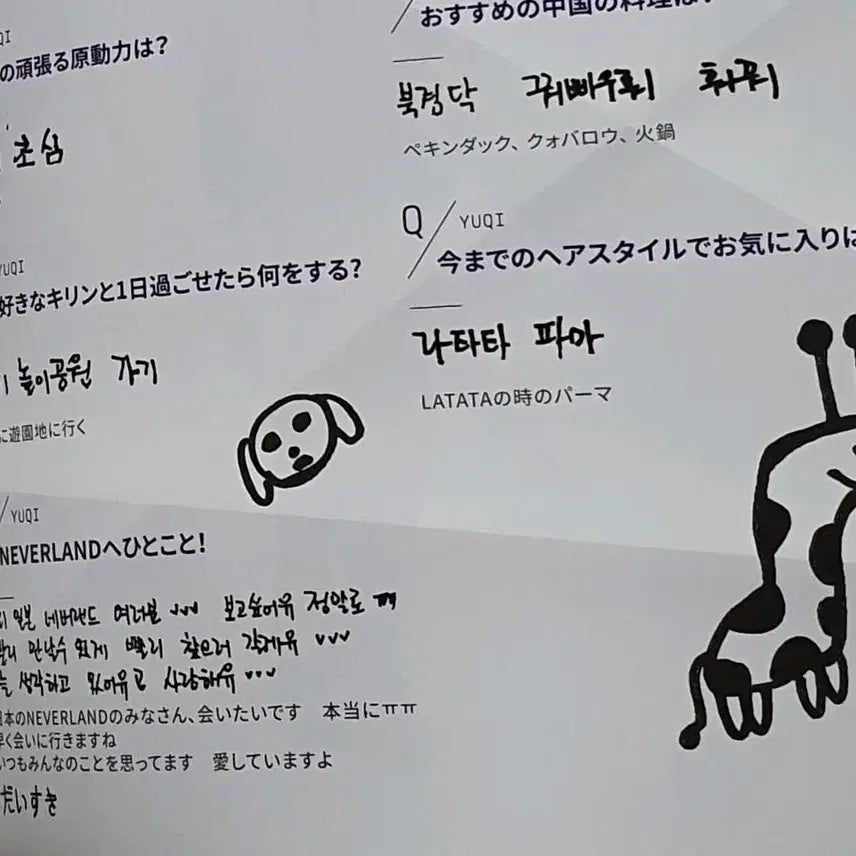 の頑張る原動力は?
초심
YUQI
好きなキリンと1日過ごせたら何をする?
놀이공원 가기
に遊園地に行く
YUQI
NEVERLANDへひとこと!
일본 네버랜드 여러분 보고싶어유 정말로 ㅠㅠ
만날수 있게 빨리 찾으러 갈게유
생각하고 있어유 사랑해유
日本のNEVERLANDのみなさん、会いたいです 本当にㅠㅠ
早く会いに行きますね
いつもみんなのことを思ってます 愛していますよ
だいすき
おすすめの中国の料理は?
북경닥 궈빠우뤄 훠궈
ペキンダック、クォバロウ、火鍋
Q YUQI
今までのヘアスタイルでお気に入りは
라타타 파마
LATATAの時のパーマ